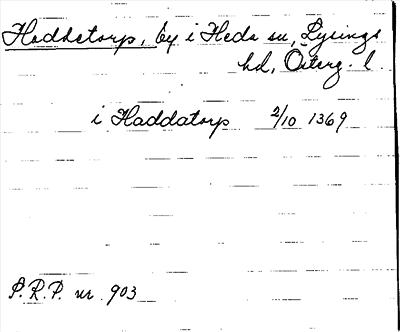 Haddetorp, by i Heda sn, Lysings
hd, Österg. l.
i Haddatorp 2/10 1369
P.R.P. nr 903